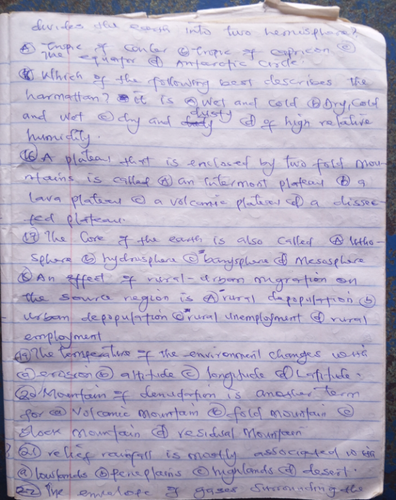 divides the earth into two hemisphere?
(A) tropic of Cancer (b) tropic of capricon (c)
The equator (d) Antarctic Circle.
Which of the following best describes the
harmattan? it is (a) Wet and Cold (b) Dry, Cold
and wet (c) dry and dusty (d) of high relative
humidity.
(16) A plateau that is enclosed by two fold mou-
ntains is called (a) an intermont plateau (b) a
lava plateau (c) a volcanic plateau (d) a disse-
ted plateau.
(17) The Core of the earth is also called (A) litho-
sphere (b) hydrosphere (c) barysphere (d) Mesosphere
An effect of rural-urban migration on
the source region is (A) rural depopulation (b)
urban depopulation (c) rural unemployment (d) rural
employment
(19) The temperature of the environment changes with
(a) erosion (b) altitude (c) longitude (d) Latitude.
(20) Mountain of denudation is another term
for (a) Volcanic Mountain (b) fold Mountain (c)
block Mountain (d) residual Mountain
(21) relief rainfall is mostly associated with
(a) lowlands (b) peneplains (c) highlands (d) desert.
22 The envelope of gases surrounding the